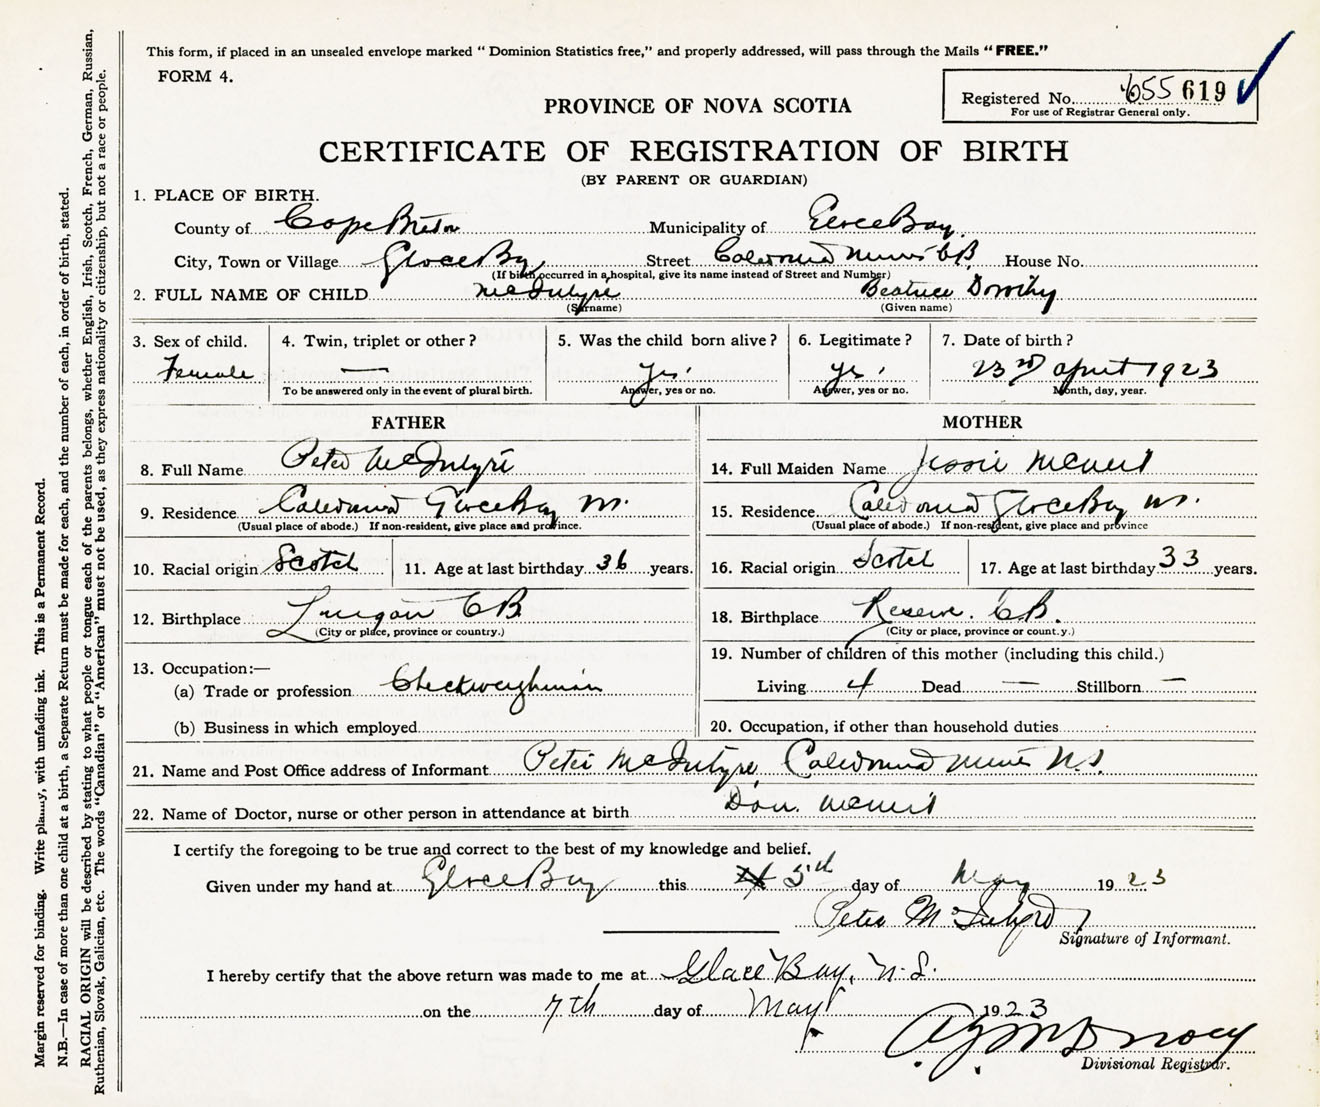 This form, if placed in an unsealed envelope marked "Dominion Statistics free," and properly addressed, will pass through the Mails "FREE."
FORM 4.
Registered No. 655 619
For use of Registrar General only.
PROVINCE OF NOVA SCOTIA
CERTIFICATE OF REGISTRATION OF BIRTH
(BY PARENT OR GUARDIAN)
1. PLACE OF BIRTH.
County of Cape Breton Municipality of Glace Bay
City, Town or Village Glace Bay Street Caledonia Mines CB House No.
(If birth occurred in a hospital, give its name instead of Street and Number)
2. FULL NAME OF CHILD McIntyre Beatrice Dorothy
(Surname) (Given name)
3. Sex of child. 4. Twin, triplet or other? 5. Was the child born alive? 6. Legitimate? 7. Date of birth?
Female — yes. yes. 23rd april 1923
To be answered only in the event of plural birth. Answer, yes or no. Answer, yes or no. Month, day, year.
FATHER MOTHER
8. Full Name Peter McIntyre 14. Full Maiden Name Jessie McNeil
9. Residence Caledonia Glace Bay 15. Residence Caledonia Glace Bay
(Usual place of abode.) If non-resident, give place and province. (Usual place of abode.) If non-resident, give place and province
10. Racial origin Scotch 11. Age at last birthday 36 years. 16. Racial origin Scotch 17. Age at last birthday 33 years.
12. Birthplace Lingan CB 18. Birthplace Reserve. CB.
(City or place, province or country.) (City or place, province or count.y.)
19. Number of children of this mother (including this child.)
13. Occupation:—
(a) Trade or profession Checkweighman Living 4 Dead — Stillborn —
(b) Business in which employed 20. Occupation, if other than household duties
21. Name and Post Office address of Informant Peter McIntyre, Caledonia Mines N.S.
22. Name of Doctor, nurse or other person in attendance at birth Dan. McNeil
I certify the foregoing to be true and correct to the best of my knowledge and belief.
Given under my hand at Glace Bay this 5th day of May 1923
Peter McIntyre
Signature of Informant.
I hereby certify that the above return was made to me at Glace Bay, N.S.
on the 7th day of May 1923
Divisional Registrar.
Margin reserved for binding. Write plainly, with unfading ink. This is a Permanent Record.
N.B.—In case of more than one child at a birth, a Separate Return must be made for each, and the number of each, in order of birth, stated.
RACIAL ORIGIN will be described by stating to what people or tongue each of the parents belongs, whether English, Irish, Scotch, French, German, Russian,
Ruthenian, Slovak, Galician, etc. The words "Canadian" or "American" must not be used, as they express nationality or citizenship, but not a race or people.